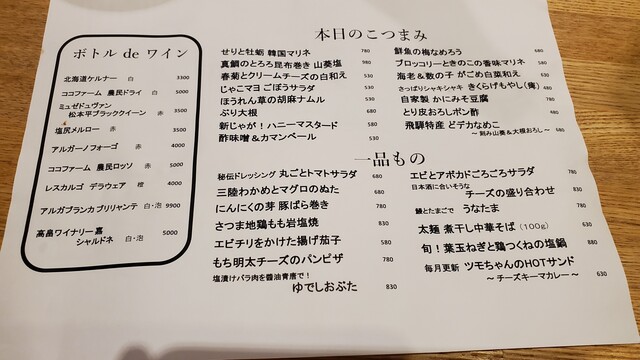 本日のこつまみ
ボトル de ワイン
北海道ケルナー 白 3300
ココファーム 農民ドライ 白 5000
ミュゼドュヴァン
松本平ブラッククイーン 赤 3500
塩尻メルロー 赤 3500
アルガーノフォーゴ 赤 4000
ココファーム 農民ロッソ 赤 5000
レスカルゴ デラウェア 橙 4000
アルガブランカ ブリリャンテ 白・泡 9900
高畠ワイナリー 嘉
シャルドネ 白・泡 5000
せりと牡蛎 韓国マリネ 780
真鯛のとろろ昆布巻き 山葵塩 980
春菊とクリームチーズの白和え 530
じゃこマヨ ごぼうサラダ 530
ほうれん草の胡麻ナムル 530
ぶり大根 680
新じゃが！ハニーマスタード 580
酢味噌＆カマンベール 530
鮮魚の梅なめろう 680
ブロッコリーときのこの香味マリネ 580
海老＆数の子 がごめ白菜和え 630
さっぱりシャキシャキ きくらげもやし(青) 480
自家製 かにみそ豆腐 780
とり皮おろしポン酢 480
飛騨特産 どデカなめこ 480
～ 刻み山葵＆大根おろし ～
一品もの
秘伝ドレッシング 丸ごとトマトサラダ 680
三陸わかめとマグロのぬた 680
にんにくの芽 豚ばら巻き 780
さつま地鶏もも岩塩焼 830
エビチリをかけた揚げ茄子 580
もち明太チーズのパンピザ 780
塩漬けバラ肉を醤油青唐で！
ゆでしおぶた 830
エビとアボカドごろごろサラダ 780
日本酒に合いそうな
チーズの盛り合わせ 830
鰻とたまごで うなたま 780
太麺 煮干し中華そば (100g) 630
旬！葉玉ねぎと鶏つくねの塩鍋 880
毎月更新 ツモちゃんのHOTサンド
～ チーズキーマカレー ～ 630